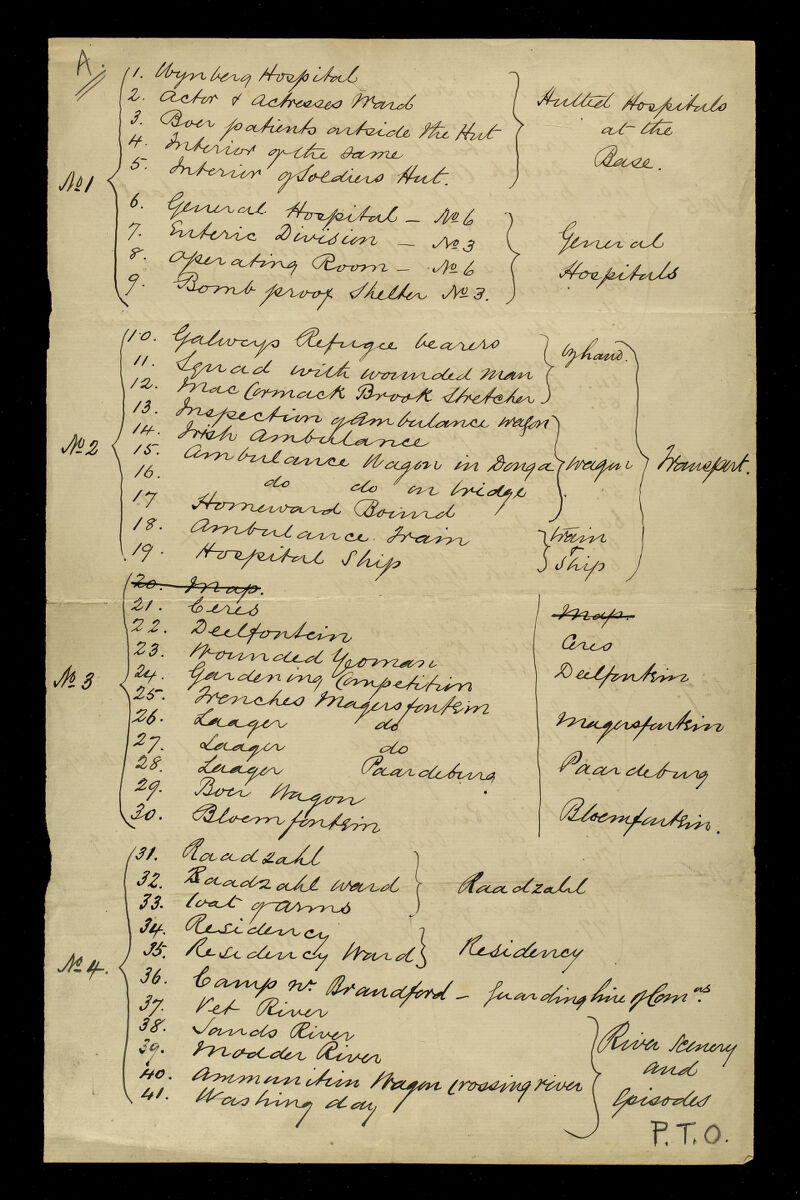 A.
No 1
1. Wynberg Hospital
2. Actor & Actresses Ward
3. Boer patients outside the Hut
4. Interior of the same
5. Interior of Soldiers Hut.
Hutted Hospitals
at the
Base.
6. General Hospital — No 6
7. Enteric Division — No 3
8. Operating Room — No 6
9. Bomb proof Shelter No 3.
General
Hospitals
No 2
10. Galways Refugee bearers
11. Squad with wounded man
12. MacCormack Brook Stretcher
by hand.
13. Inspection of Ambulance Wagon
14. Irish Ambulance
15. Ambulance Wagon in Donga
16. do do on bridge
17 Homeward Bound
Wagon
18. Ambulance Train
19. Hospital Ship
train
&
Ship
Transport.
No 3
20. Map.
21. Ceres
22. Deelfontein
23. Wounded Yeoman
24. Gardening Competition
25. Trenches Magersfontein
26. Laager do
27. Laager do
28. Laager Paardeburg
29. Boer Wagon
30. Bloemfontein
Map.
Ceres
Deelfontein
Magersfontein
Paardeburg
Bloemfontein.
No 4.
31. Raadzahl
32. Raadzahl ward
33. Coat of arms
Raadzahl
34. Residency
35. Residency Ward
Residency
36. Camp nr. Brandford — Guarding line of Comns.
37. Vet River
38. Sands River
39. Modder River
40. Ammunition Wagon crossing river
41. Washing day
River Scenery
and
Episodes
P.T.O.